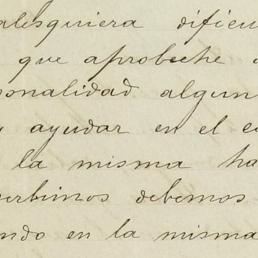 alesquiera dificu
que aprobeche
sonalidad algun
y ayudar en el e
la misma ha
erbimos debemos
ndo en la misma